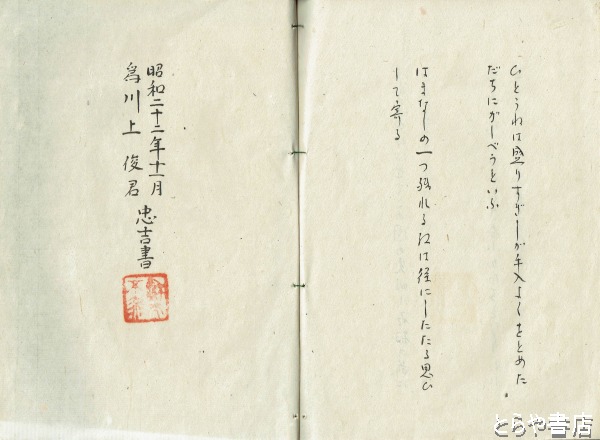 ひとうねは盛りすぎしが手入よくをとめた
だちにがしべうといふ
はまなしの一つ残れる紅は径にしたたる思ひ
して寄る
昭和二十二年十一月
為川上俊君 忠吉書
とらや書店